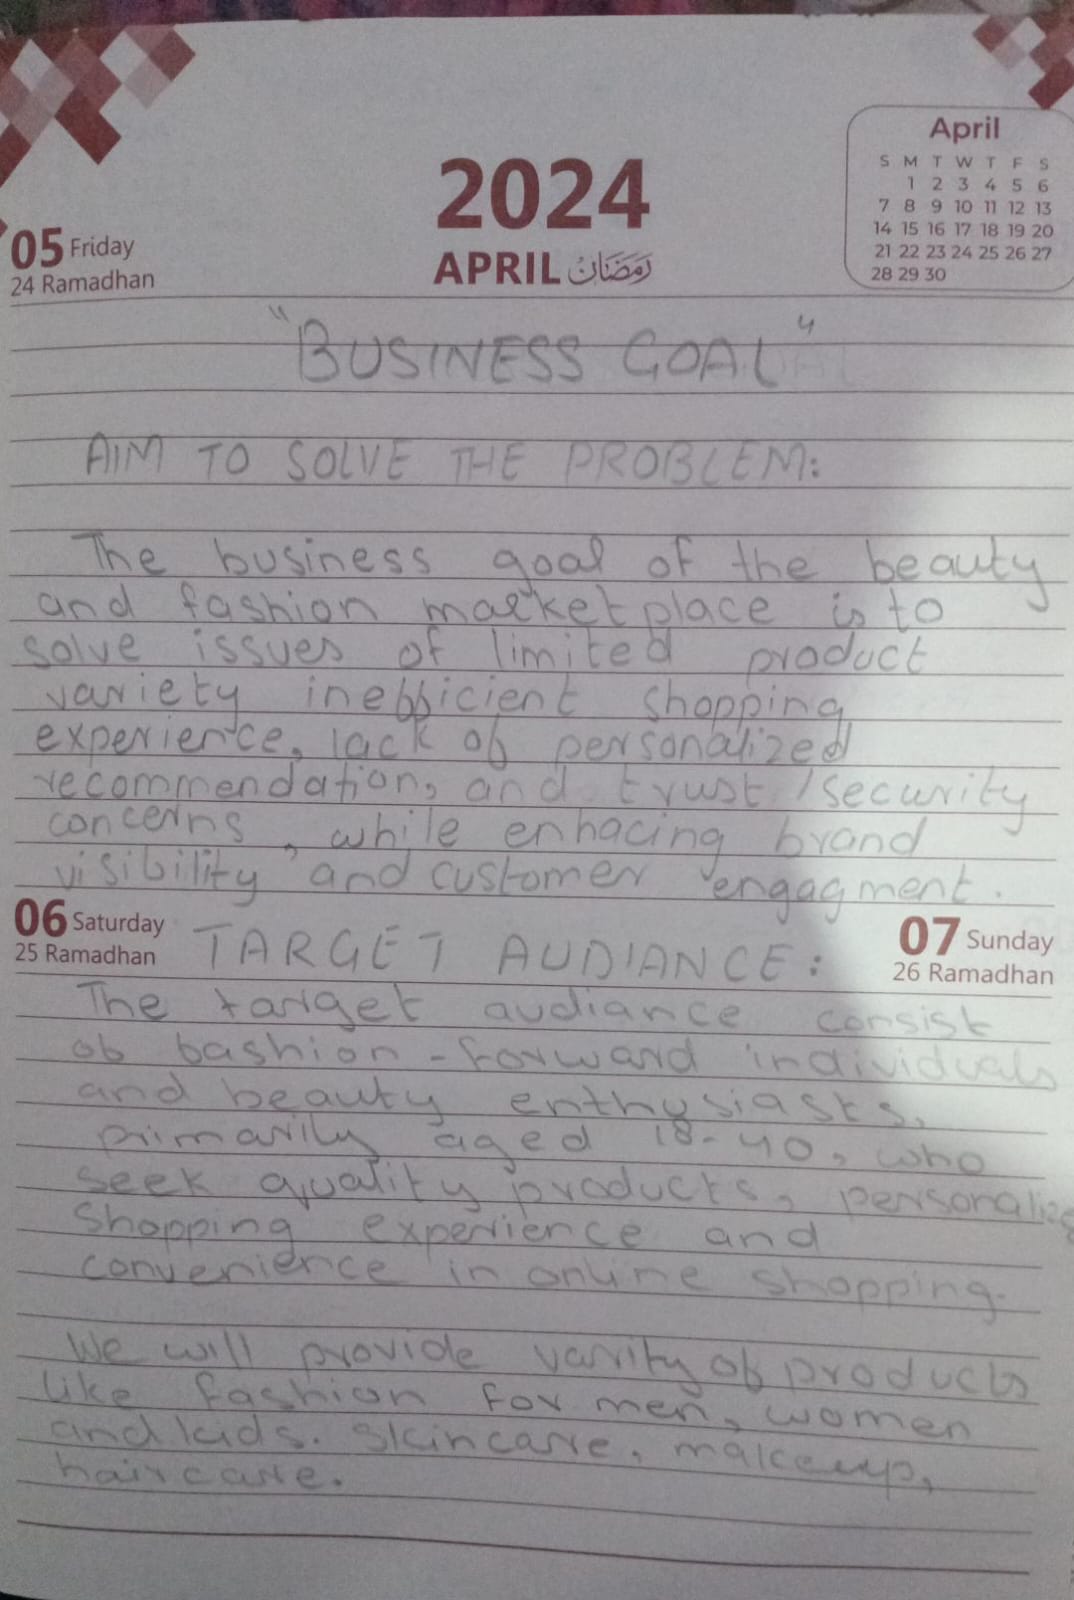 April
S M T W T F S
1 2 3 4 5 6
7 8 9 10 11 12 13
14 15 16 17 18 19 20
21 22 23 24 25 26 27
28 29 30
2024
APRIL رَمَضَانُ
05 Friday
24 Ramadhan
"BUSINESS GOAL"
AIM TO SOLVE THE PROBLEM:
The business goal of the beauty
and fashion marketplace is to
solve issues of limited product
variety inefficient shopping
experience, lack of personalized
recommendation, and trust/security
concerns, while enhacing brand
visibility and customer engagment.
06 Saturday
25 Ramadhan
TARGET AUDIANCE:
07 Sunday
26 Ramadhan
The target audiance consist
of fashion-forward individuals
and beauty enthysiasts,
primarily aged 18-40, who
seek quality products, personalize
shopping experience and
convenience in online shopping.
We will provide varity of products
like fashion for men, women
and kids. skincare, makeup,
haircare.